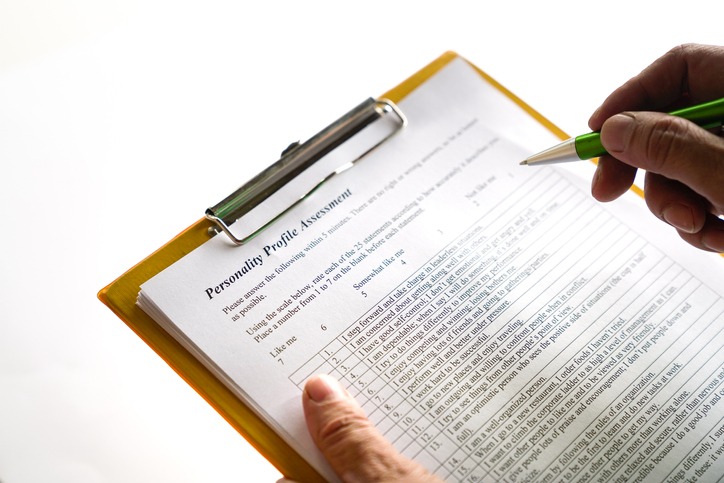 Personality Profile Assessment
Please answer the following within 5 minutes. There are no right or wrong answers, so be as honest
as possible.
Using the scale below, rate each of the 25 statements according to how accurately it describes you.
Place a number from 1 to 7 on the blank before each statement.
Like me Somewhat like me Not like me
7 6 5 4 3 2 1
1. I step forward and take charge in leaderless situations.
2. I am concerned about getting along well with others.
3. I have good self-control; I don't get emotional and get angry and yell.
4. I am dependable; when I say I will do something, it's done well and on time.
5. I try to do things differently to improve my performance.
I enjoy competing and winning; losing bothers me.
I enjoy having lots of friends and going to gatherings/parties.
I perform well under pressure.
I work hard to be successful.
10. I go to new places and enjoy traveling.
11. I am outgoing and willing to confront people when in conflict.
12. I try to see things from other people's point of view.
13. I am an optimistic person who sees the positive side of situations (the cup is half
full).
14. I am a well-organized person.
When I go to a new restaurant, I order foods I haven't tried.
I want to climb the corporate ladder to as high a level of management as I can.
I want other people to like me and to be viewed as very friendly.
give people lots of praise and encouragement; I don't put people down and
by following the rules of an organization.
to be the first to learn and do new tasks at work.
other people to get my way.
others more than working alone.
relaxed and secure, rather than nervous and
because I do a good job and c